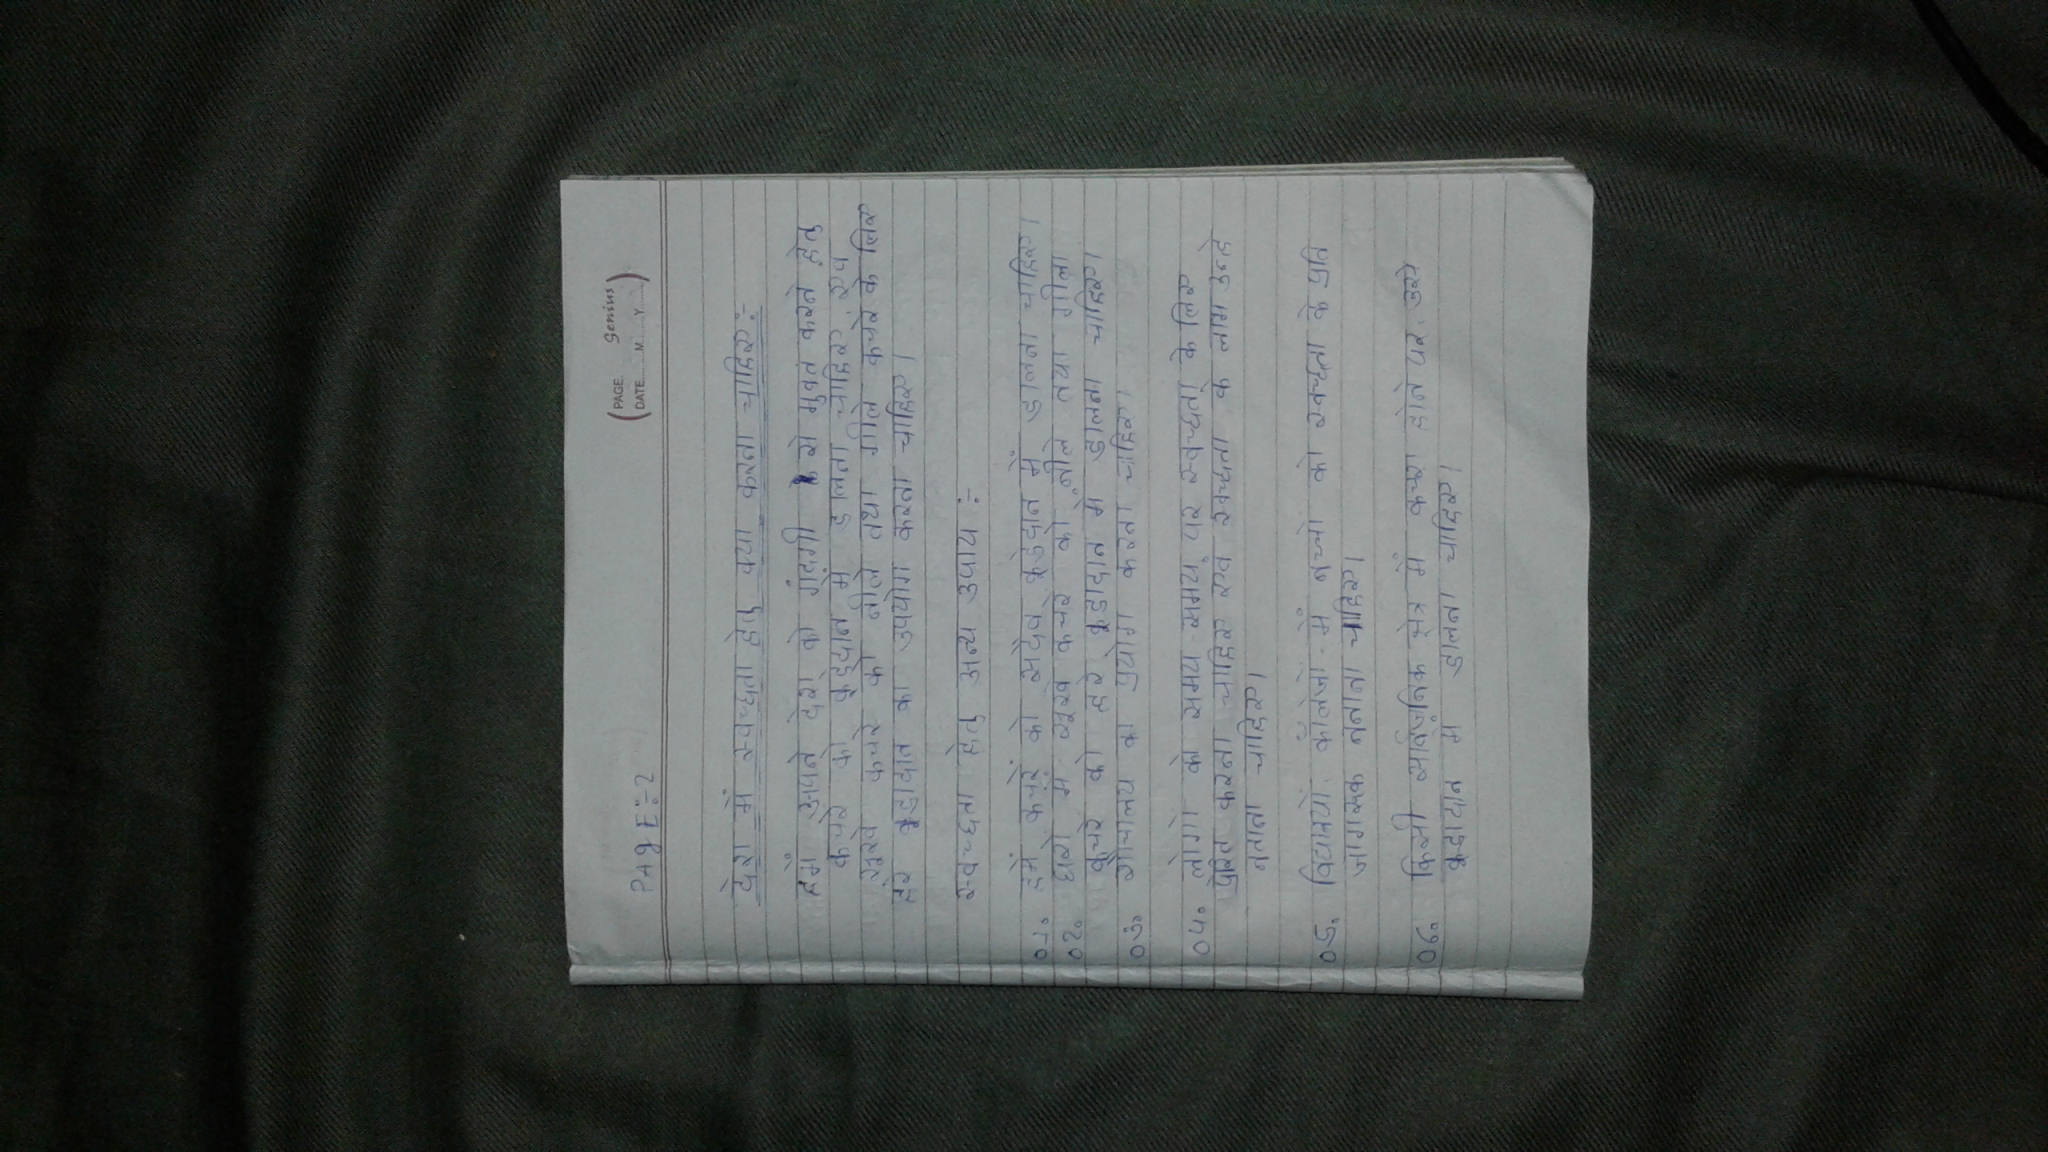 PAGE Genius
DATE......M......Y......
PAgE:-2
देश में स्वच्छता हेतु क्या करना चाहिए:-
हमें अपने देश को गंदगी से मुक्त करने हेतु
कचरे को कूड़ेदान में डालना चाहिए एवं
सूखे कचरे को नीले तथा गीले कचरे के लिए
हरे कूड़ादान का उपयोग करना चाहिए।
स्वच्छता हेतु अन्य उपाय :-
01. हमें कचरे को सदैव कूड़ेदान में डालना चाहिए।
02. घरो में सूखे कचरे को नीले तथा गीला
कूचरे को हरे कूडादान मे डालना चाहिए।
03. शौचालय का प्रयोग करना चाहिए।
04. लोगो को समय-समय पर स्वच्छता के लिए
प्रेरित करना चाहिए एवं स्वच्छता के लाभ उन्हे
बताना चाहिए।
05. विद्यालयों कॉलेजो में बच्चो को स्वच्छता के प्रति
जागरूक बनाना चाहिए।
06. किसी सार्वजनिक क्षेत्र में कचरा होने पर उसे
कूड़ादान मे डालना चाहिए।